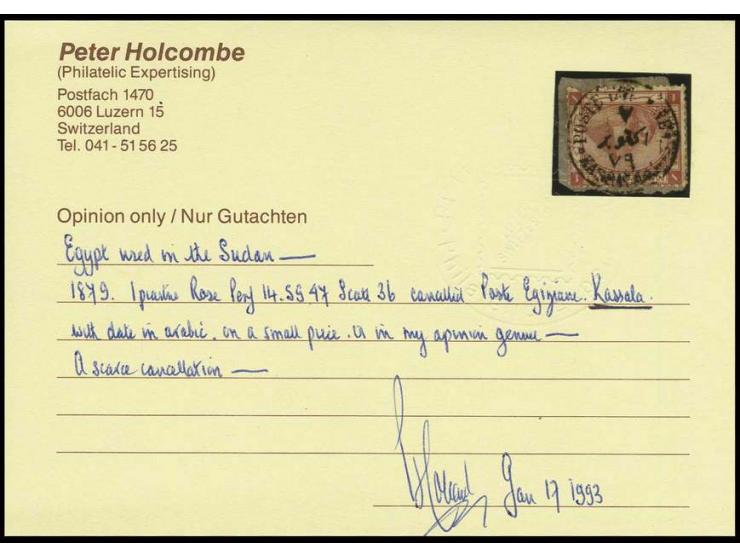 Peter Holcombe
(Philatelic Expertising)
Postfach 1470
6006 Luzern 15
Switzerland
Tel. 041 - 51 56 25
Opinion only / Nur Gutachten
Egypt used in the Sudan —
1879. 1 piastre Rose Perf 14. SG 47 Scott 36 cancelled Poste Egiziane. Kassala.
with date in arabic. on a small piece. is in my opinion genuine —
A scarce cancellation —
Jan 17 1993